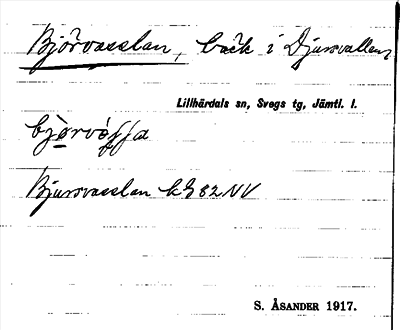 Björvasslan, bäck i Djursvallen
Lillhärdals sn, Svegs tg, Jämtl. l.
Bjursvasslan 82 NV
S. ÅSANDER 1917.